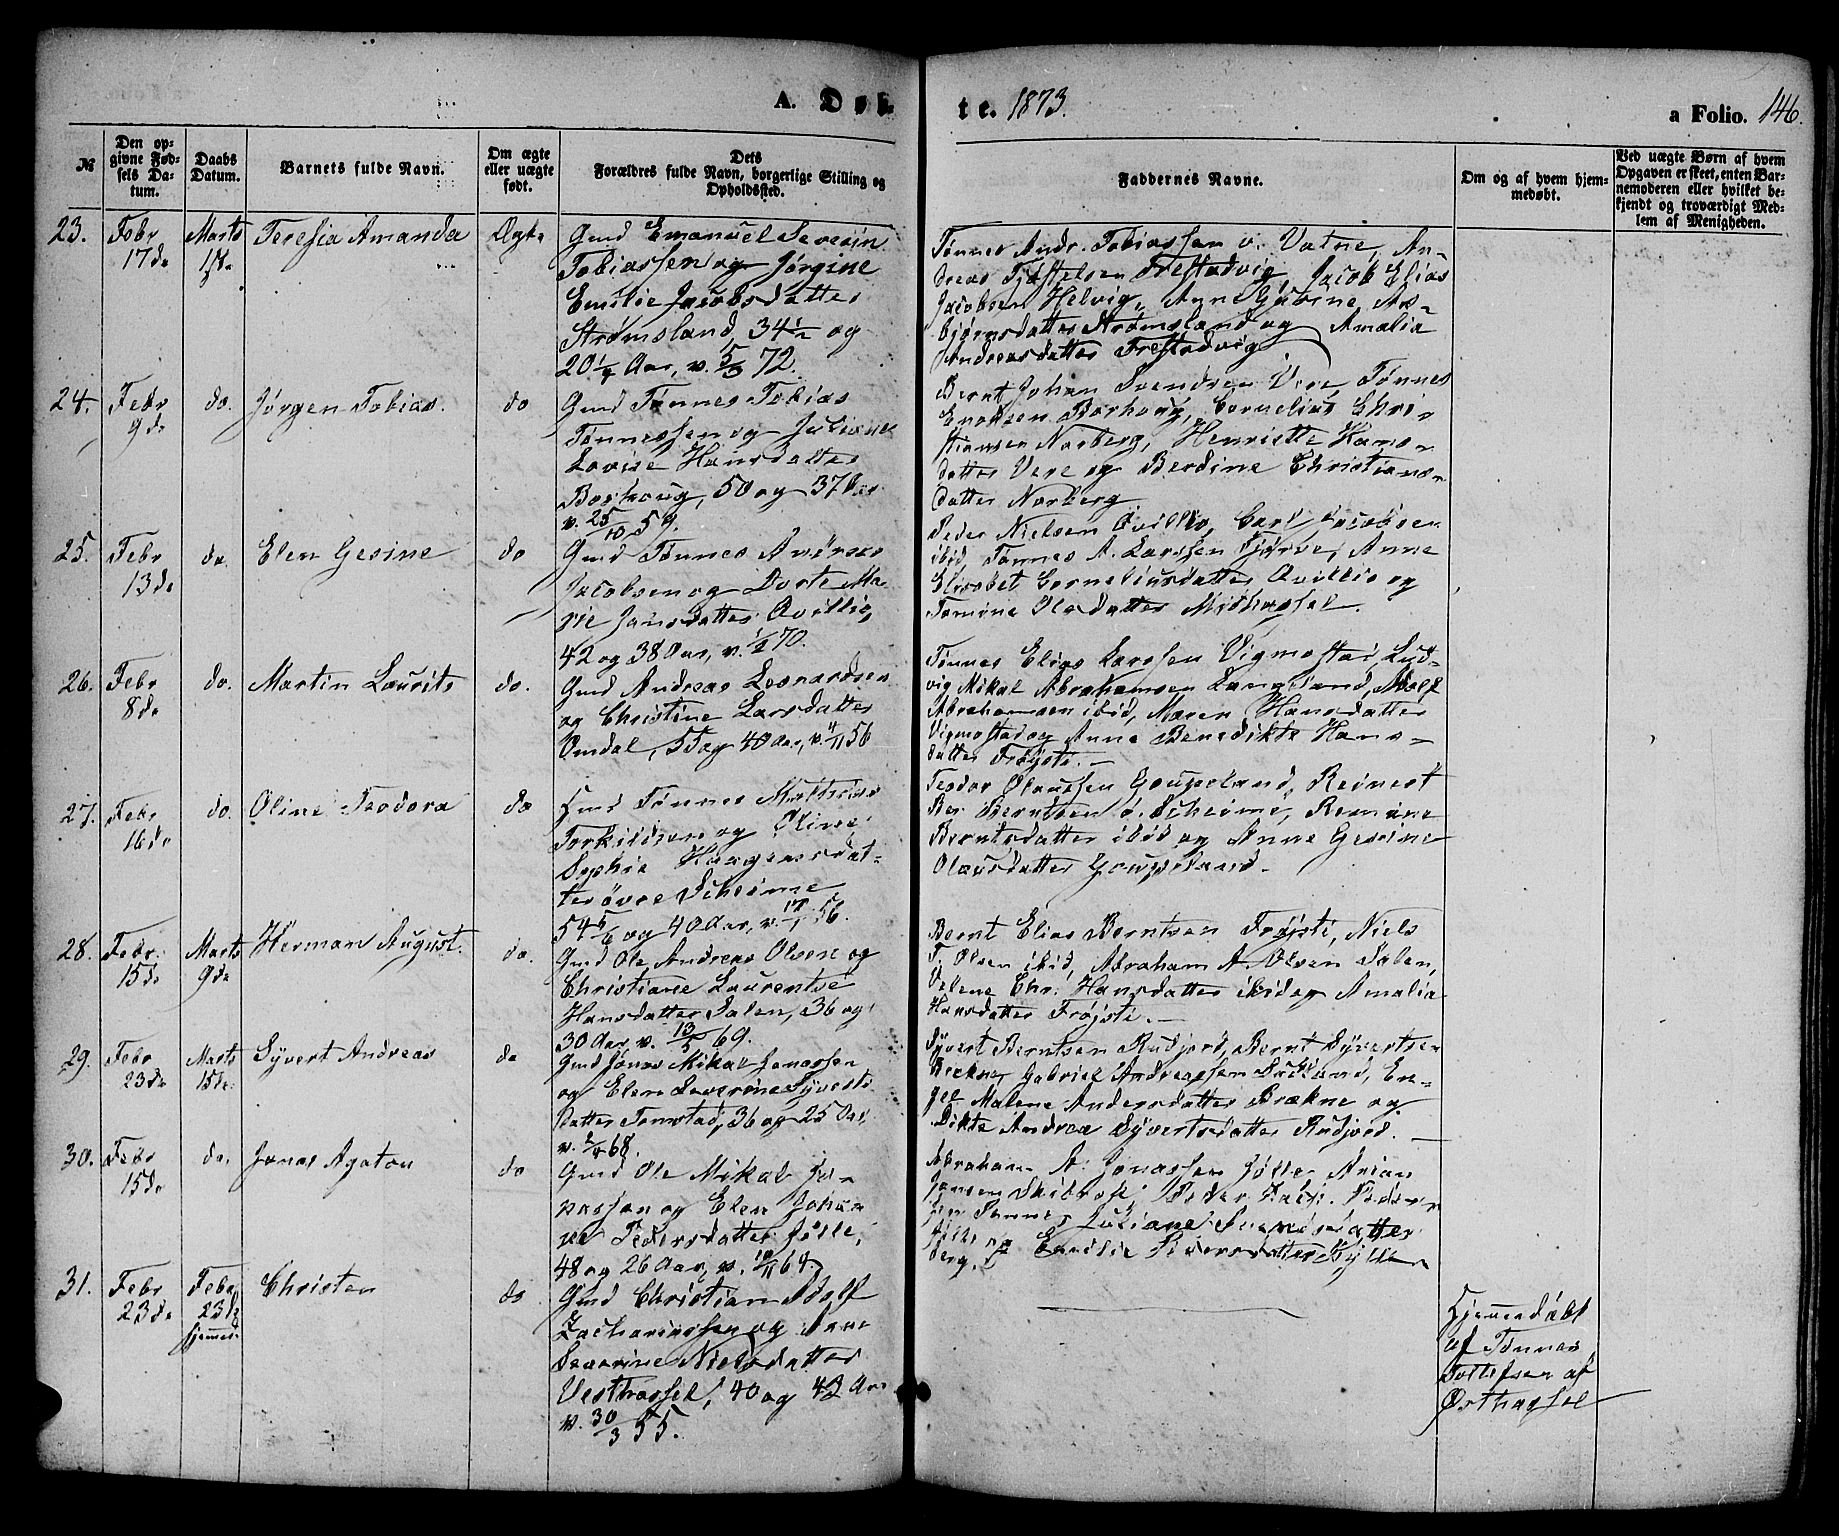 A. Døb-
te. 1873.
a Folio. 146.
№
Den op-
givne Fød-
sels Da-
tum.
Daabs
Datum.
Barnets fulde Navn.
Om ægte
eller uægte
født.
Dets
Forældres fulde Navn, borgerlige Stilling og
Opholdssted.
Faddernes Navne.
Om og af hvem hjem-
medøbt.
Ved uægte Børn af hvem
Opgaven er skeet, enten Bar-
nemoderen eller hvilket be-
kjendt og troværdigt Med-
lem af Menigheden.
23.
Febr
17de
Marts
1ste
Teresia Amanda
Ægte
Gmd Emanuel Severin
Tobiassen og Jørgine
Emilie Jacobsdatter
Strømsland, 34½ og
20¼ Aar, v. 5/3 72.
Tønnes Andr. Tobiassen v. Vatne, An-
dreas Tjøstelsen Frestadvig, Jacob Elias
Jacobsen Helvig, Anne Gurine As-
bjørnsdatter Strømsland og Amalia
Andreasdatter Frestadvig
24.
Febr
9de
do.
Jørgen Tobias.
do
Gmd Tønnes Tobias
Tønnessen og Juliane
Lovise Hansdatter
Borhoug, 50 og 37 Aar
v. 25/10 59.
Bernt Johan Svendsen Vere, Tønnes
Enoksen Borhoug, Cornelius Chri-
stiansen Norberg, Henriette Hans-
datter Vere og Berdine Christians-
datter Norberg
25.
Febr
13de
do.
Elen Gesine
do
Gmd Tønnes Andreas
Jacobsen og Dorte Ma-
rie Jansdatter Qvillio,
42 og 38 Aar, v. 70.
Peder Nielsen Qvillio, Carl Jacobsen
ibid, Tønnes A. Larssen Tjørve, Anne
Elisabet Corneliusdatter Qvillio og
Tomine Olsdatter Midthassel.
26.
Febr
8de
do.
Martin Laurits
do.
Gmd Andreas Leonardsen
og Christine Larsdatter
Omdal, 55 og 40 Aar, v. 4/11 56
Tønnes Elias Larssen Vigmostad, Lud-
vig Mikal Abrahamsen Langeland, Adolf
Abrahamsen ibid, Maren Hansdatter
Vigmostad og Anne Benedikte Hans-
datter Frøjsti. —
27.
Febr
16de
do.
Oline Teodora
do
Hmd Tønnes Mathias
Torkildsen og Oline
Sophie Haagensdat-
ter øvre Scheime
54 5/6 og 40 Aar, v. 17/1 56.
Teodor Olaussen Goupeland, Reinert
Ber. Berntsen ø. Scheime, Romine
Berntsdatter ibid og Anne Gesine
Olausdatter Goupeland.
28.
Febr.
15de
Marts
9de
Herman August.
do.
Gmd Ole Andreas Olsen og
Christiane Laurentse
Hansdatter Dalen, 36 og
30 Aar, v. 13/5 69.
Bernt Elias Berntsen Frøjsti, Niels
T. Olsen ibid, Abraham A. Olsen Dalen,
Velene Chr. Hansdatter ibid og Amalia
Hansdatter Frøjsti. —
29.
Febr
23de
Marts
15de
Syvert Andreas
do
Gmd Jonas Mikal Jonassen
og Elen Severine Syverts-
datter Tomstad, 36 og 25 Aar,
v. 68.
Syvert Berntsen Rudjord, Bernt Syvertsen
Brekne, Gabriel Andreassen Ladland, En-
gel Malene Andersdatter Brækne og
Dikte Andrea Syvertsdatter Rudjord. —
30.
Febr
15de
do.
Jonas Agaton
do
Gmd Ole Mikal Jo-
nassen og Elen Johan-
ne Pedersdatter Jølle,
48 og 26 Aar, v. 10/11 64
Abraham A. Jonassen Jølle, Arian
Jonsen Peder
Tønnes Juliane Svendsdatter
Jølle og Emilie Pedersdatter
berg.
31.
Febr
23de
Febr
23de
hjemmed.
Christen
do
Gmd Christian Adolf
Zachariassen og
Severine Nielsdatter
Vesthassel, 40 og 43 Aar
v. 30/3 55.
Hjemmedøbt
af Tønnes
Tollefsen af
Østhassel